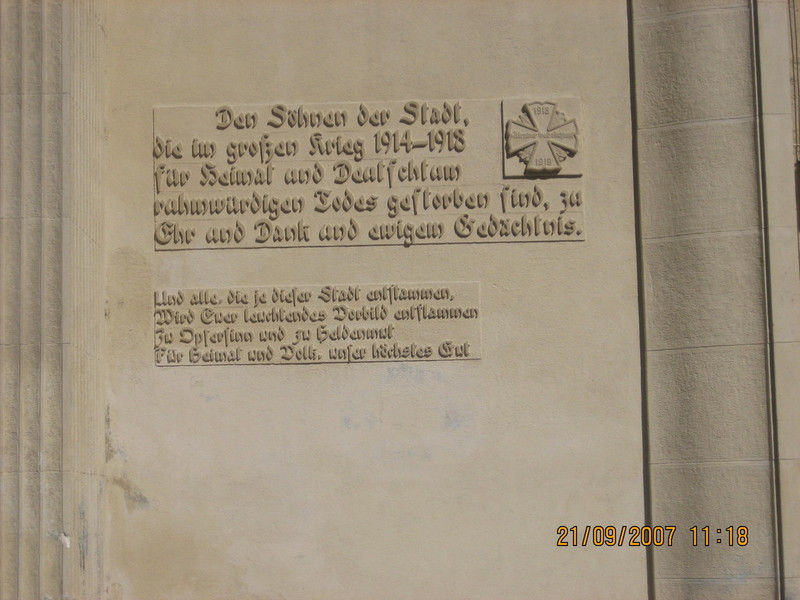 Den Söhnen der Stadt,
die im großen Krieg 1914-1918
für Heimat und Deutschtum
ruhmwürdigen Todes gestorben sind, zu
Ehr und Dank und ewigem Gedächtnis.
1918
1919
Und alle, die je dieser Stadt entstammen,
Wird Euer leuchtendes Vorbild entflammen
Zu Opfersinn und zu Heldenmut
Für Heimat und Volk, unser höchstes Gut
21/09/2007 11:18